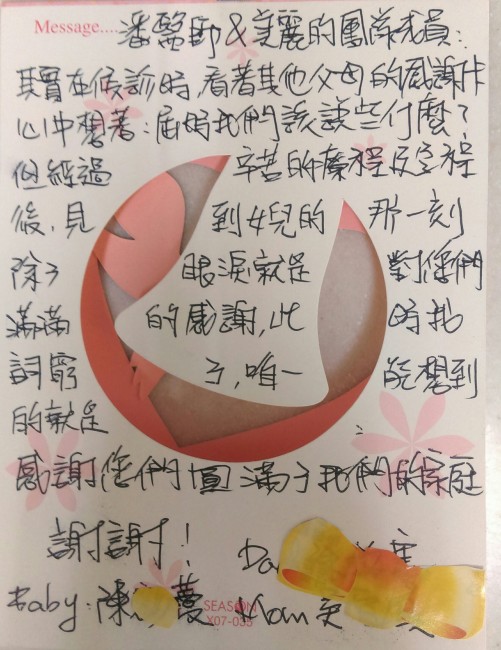 Message....潘醫師&美麗的團隊成員:
其實在候診時,看著其他父母的感謝卡
心中想著:屆時我們該說些什麼?
但經過 辛苦的療程及孕程
後,見 到女兒的 那一刻
除了 眼淚就是 對您們
滿滿 的感謝,此 時我
詞窮 了,唯一 能想到
的就是
感謝您們圓滿了我們的家庭
謝謝!
Baby:陳 蔓 Mom
SEASON
X07-055